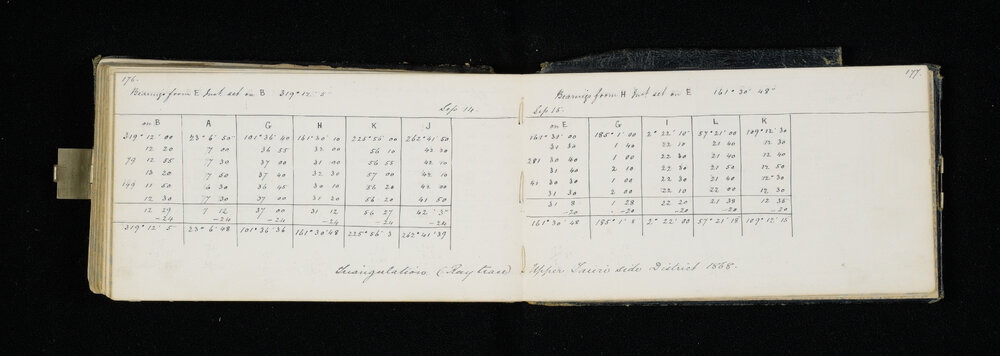 176.
Bearings from E Inst set on B 319° 12' 5"
Sep 14.
on B A G H K J
319° 12' 00 23° 6' 50" 101° 36' 40 161° 30' 10 225° 56' 00 262° 41 50
12 20 7 00 36 55 32 00 56 10 42 30
79 12 55 7 30 37 00 31 00 56 55 42 10
13 20 7 50 37 40 32 30 57 00 42 10
149 11 50 6 30 36 45 30 10 56 20 42 00
12 30 7 30 37 00 31 20 56 20 41 50
12 29 7 12 37 00 31 12 56 27 42 3"
-24 -24 -24 -24 -24 -24
319° 12' 5" 23° 6' 48 101° 36' 36 161° 30' 48 225° 56' 3 262° 41' 39
Triangulation (Ray trace)
177.
Bearings from H Inst set on E 161° 30' 48"
Sep 15.
on E G I L K
161° 30' 00 185° 1' 00 2° 22' 10" 57° 21' 00 109° 12' 30
31 30 1 40 22 10 21 40 12 30
281 30 40 1 00 22 30 21 40 12 40
31 40 2 10 22 30 21 50 12 50
41 30 30 1 00 22 30 21 40 12 30
31 30 2 00 22 10 22 00 12 30
31 8 1 28 22 20 21 38 12 35
-20 -20 -20 -20 -20
161° 30' 48 185° 1' 8 2° 22' 00 57° 21' 18 109° 12' 15
Upper side District 1868.